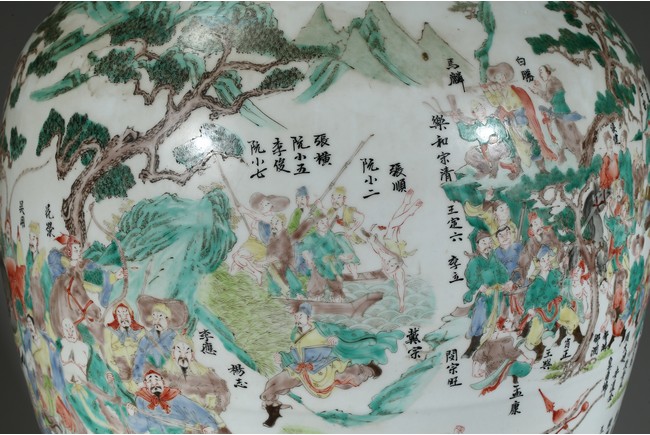 馬麟
白勝
樂和
宗清
張橫
阮小五
李俊
阮小七
張順
阮小二
王定六
李立
李應
楊志
戴宗
閔宗旺
孟康